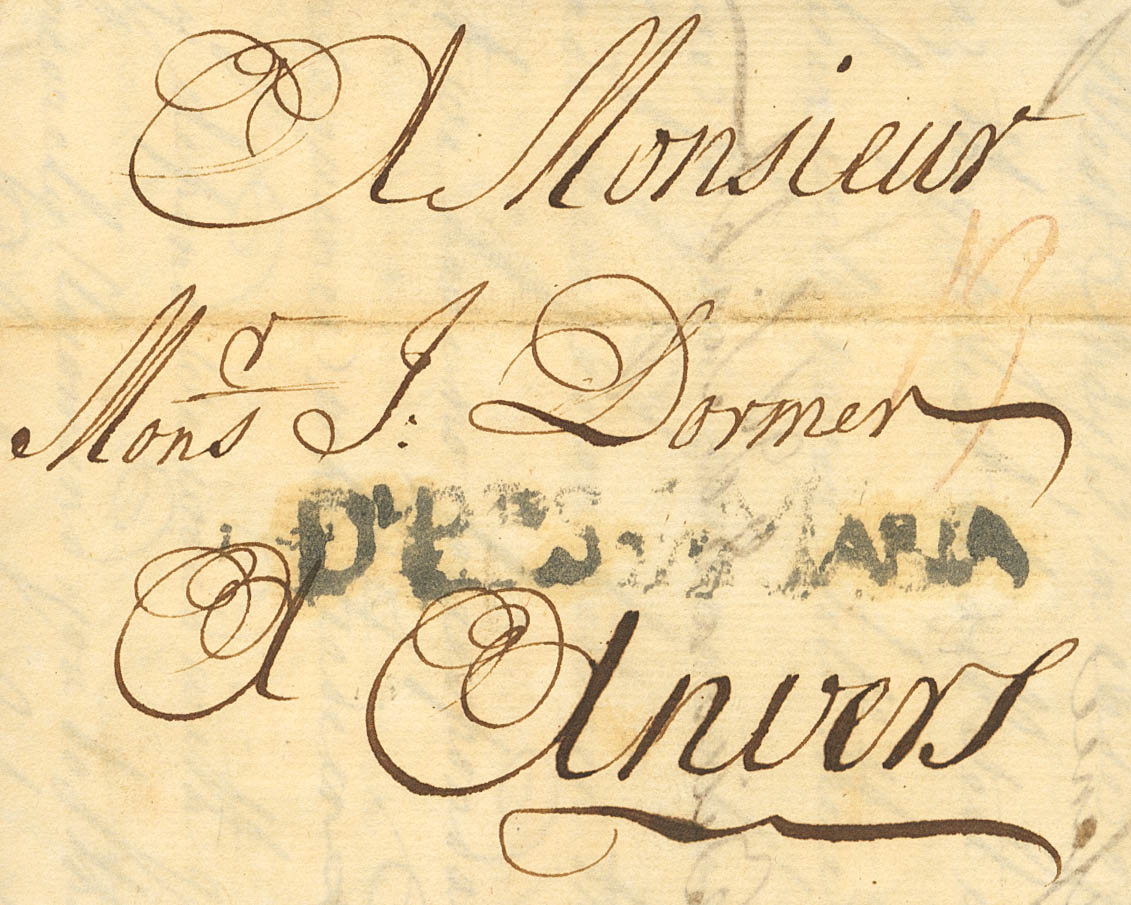 A Monsieur
Monsr J: Dormer
A Anvers